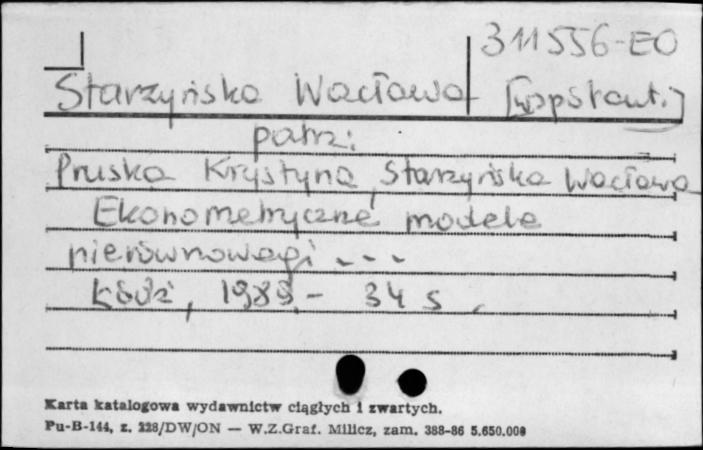 311556-EO
Starzyńska Wacława [współaut.]
patrz:
Pruska Krystyna, Starzyńska Wacława
Ekonometryczne modele
nierównowagi ---
Łódź, 1989. - 34 s.
Karta katalogowa wydawnictw ciągłych i zwartych.
Pu-B-144, z. 228/DW/ON — W.Z.Graf. Milicz, zam. 388-86 5.650.000